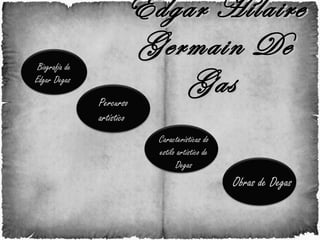 Edgar Hilaire
Germain De
Gas
Biografía de
Edgar Degas
Percurso
artístico
Características do
estilo artístico de
Degas
Obras de Degas